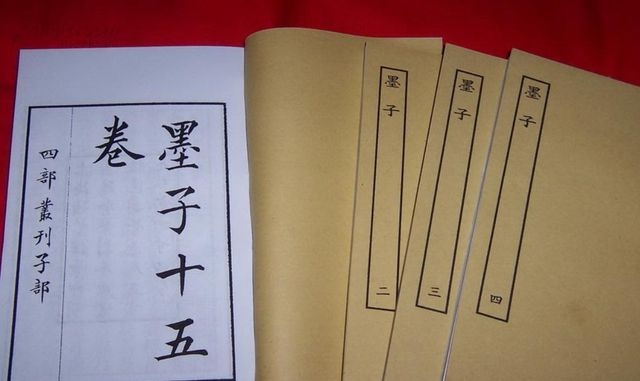 墨子十五
卷
四部叢刊子部
墨子
二
墨子
三
墨子
四